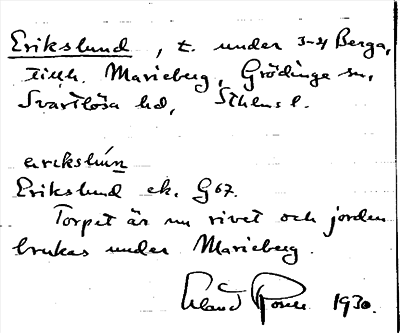 Erikslund, t. under 3-4 Berga,
tillh. Marieberg, Grödinge sn,
Svartlösa hd, Sthlms l.
erikslún
Erikslund ek. G67.
Torpet är nu rivet och jorden
brukas under Marieberg.
Erland Rosell 1930.